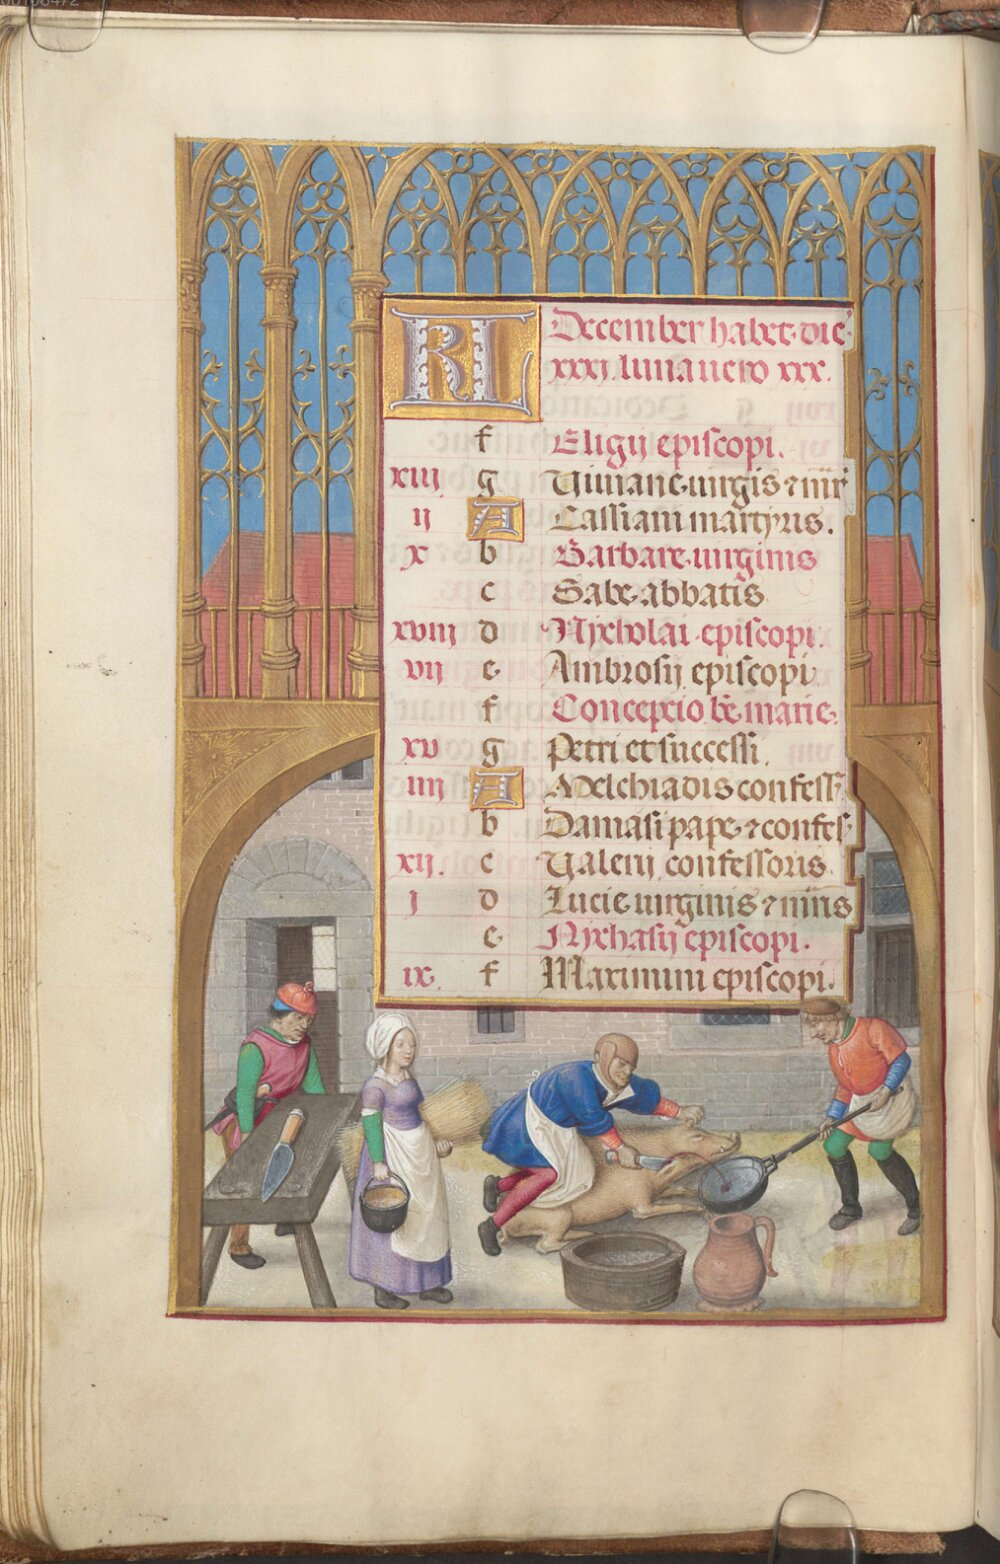 KL December habet die
xxxj luna vero xxx.
f Eligij episcopi.
xiij g Viuiane uirgis ⁊ mr̄
ij A Cassiani martyris.
x b Barbare uirginis
c Sabe abbatis
xviij d Nycholai episcopi.
vij e Ambrosij episcopi
f Concepcio be marie
xv g Petri et successi.
iiij A Melchiadis confess
b Damasi pape ⁊ confes
xij. c Valerij confessoris
j d Lucie uirginis ⁊ mris
e Nychasij episcopi.
ix f Maximini episcopi.